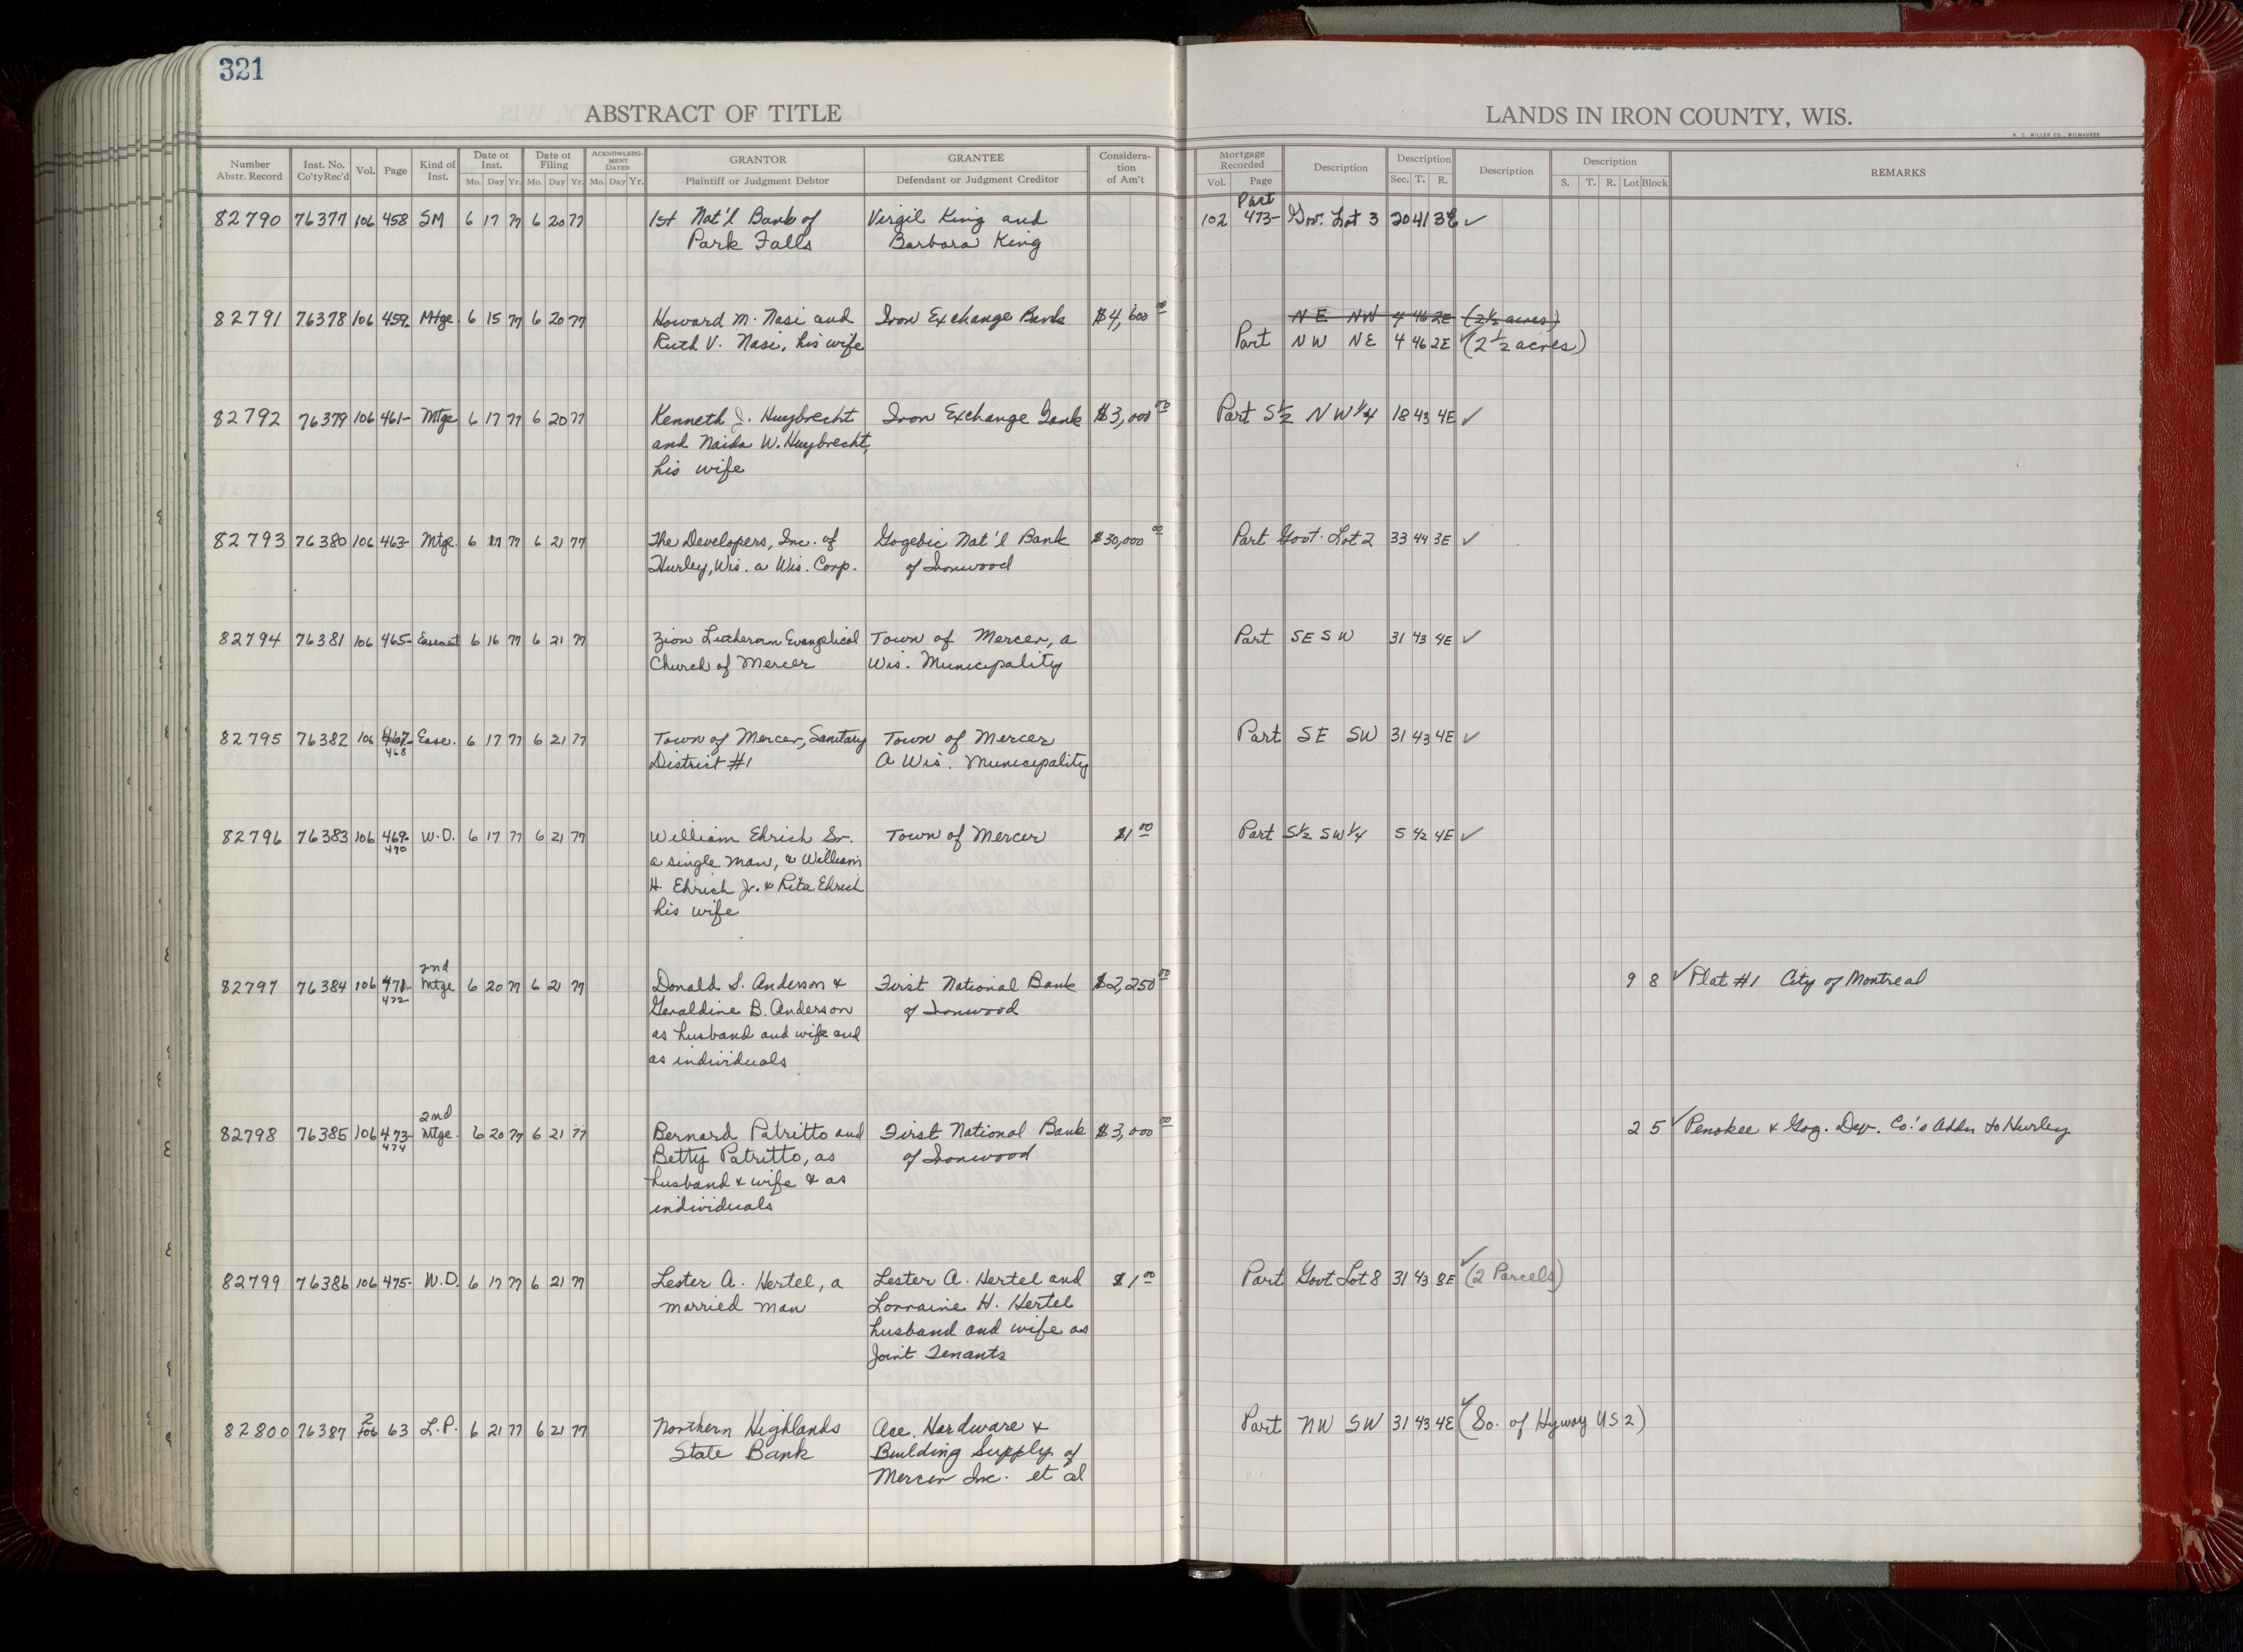 321
ABSTRACT OF TITLE
LANDS IN IRON COUNTY, WIS.
H. C. MILLER CO., MILWAUKEE
Number Abstr. Record | Inst. No. Co'ty Rec'd | Vol. | Page | Kind of Inst. | Date of Inst. Mo. Day Yr. | Date of Filing Mo. Day Yr. | ACKNOWLEDGMENT DATED Mo. Day Yr. | GRANTOR Plaintiff or Judgment Debtor | GRANTEE Defendant or Judgment Creditor | Consideration of Am't | Mortgage Recorded Vol. Page | Description | Description Sec. T. R. | Description | Description S. T. R. Lot Block | REMARKS
Part
82790 76377 106 458 SM 6 17 77 6 20 77 1st Nat'l Bank of Virgil King and 102 473- Gov. Lot 3 20 41 3E ✓
Park Falls Barbara King
82791 76378 106 459- Mtge. 6 15 77 6 20 77 Howard M. Nasi and Iron Exchange Bank $4,600 00 NE NW 4 46 2E (2 1/2 acres)
Ruth V. Nasi, his wife Part NW NE 4 46 2E ✓ (2 1/2 acres)
82792 76379 106 461- Mtge 6 17 77 6 20 77 Kenneth J. Huybrecht Iron Exchange Bank $3,000 00 Part S 1/2 NW 1/4 18 43 4E ✓
and Naida W. Huybrecht,
his wife
82793 76380 106 463- Mtge. 6 17 77 6 21 77 The Developers, Inc. of Gogebic Nat'l Bank $30,000 00 Part Govt. Lot 2 33 44 3E ✓
Hurley, Wis. a Wis. Corp. of Ironwood
82794 76381 106 465- Easement 6 16 77 6 21 77 Zion Lutheran Evangelical Town of Mercer, a Part SE SW 31 43 4E ✓
Church of Mercer Wis. Municipality
82795 76382 106 467- Ease. 6 17 77 6 21 77 Town of Mercer, Sanitary Town of Mercer Part SE SW 31 43 4E ✓
468 District #1 A Wis. Municipality
82796 76383 106 469- W.D. 6 17 77 6 21 77 William Ehrich Sr. Town of Mercer $1 00 Part S 1/2 SW 1/4 5 42 4E ✓
470 a single man, & William
H. Ehrich Jr. & Rita Ehrich
his wife
2nd
82797 76384 106 471- Mtge 6 20 77 6 21 77 Donald S. Anderson & First National Bank $2,250 00 9 8 ✓ Plat #1 City of Montreal
472 Geraldine B. Anderson of Ironwood
as husband and wife and
as individuals
2nd
82798 76385 106 473- Mtge. 6 20 77 6 21 77 Bernard Patritto and First National Bank $3,000 00 2 5 ✓ Penokee & Gog. Dev. Co.'s Addn to Hurley
474 Betty Patritto, as of Ironwood
husband & wife & as
individuals
82799 76386 106 475- W.D. 6 17 77 6 21 77 Lester A. Hertel, a Lester A. Hertel and $1 00 Part Govt Lot 8 31 43 8E ✓ (2 Parcels)
married man Lorraine H. Hertel
husband and wife as
Joint Tenants
2
82800 76387 106 63 L.P. 6 21 77 6 21 77 Northern Highlands Ace Hardware & Part NW SW 31 43 4E ✓ (So. of Hyway US 2)
State Bank Building Supply of
Mercer Inc. et al